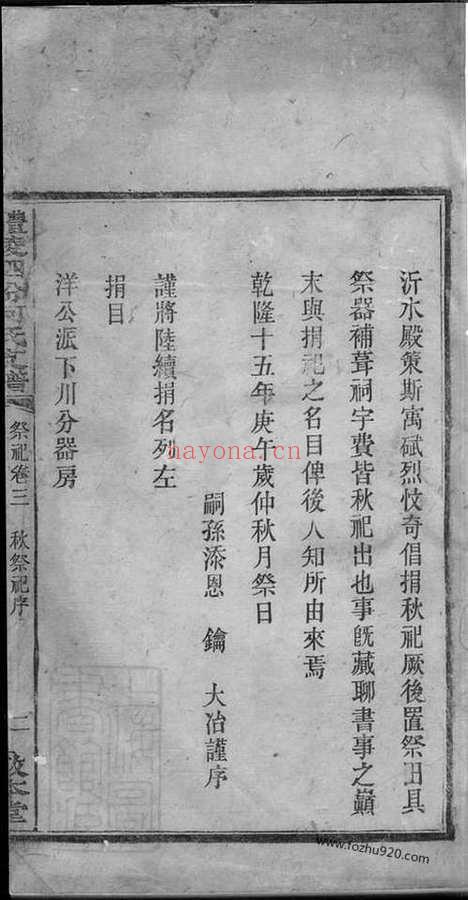 沂水殿策斯寓碔烈忮奇倡捐秋祀厥後置祭田具
祭器補葺祠宇費皆秋祀出也事旣蕆聊書事之巔
末與捐祀之名目俾後人知所由來焉
乾隆十五年庚午歲仲秋月祭日
嗣孫添恩 鑰 大冶謹序
謹將陸續捐名列左
捐目
洋公派下川分器房
醴陵四分何氏支譜
祭祀卷三 秋祭祀序
二 敬本堂
hayona.cn
www.fozhu920.com